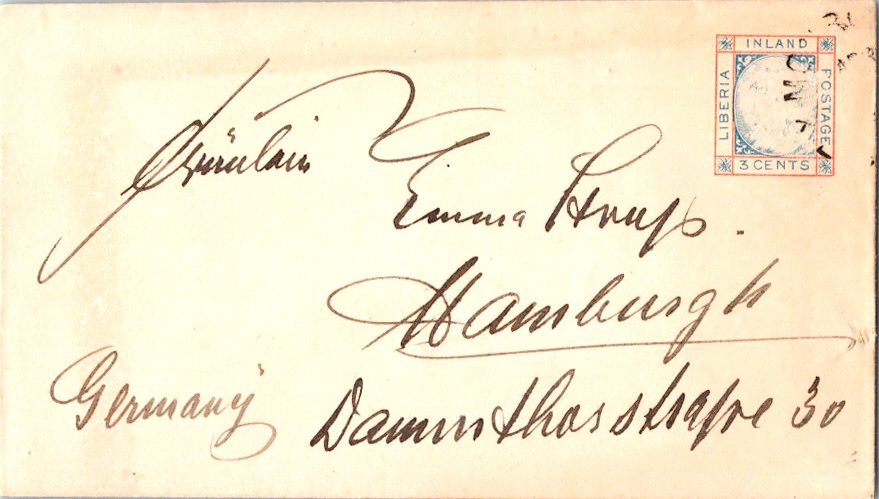 INLAND
LIBERIA
POSTAGE
3 CENTS
Fräulein
Emma
Hamburgh
Dammthorstraße 30
Germany